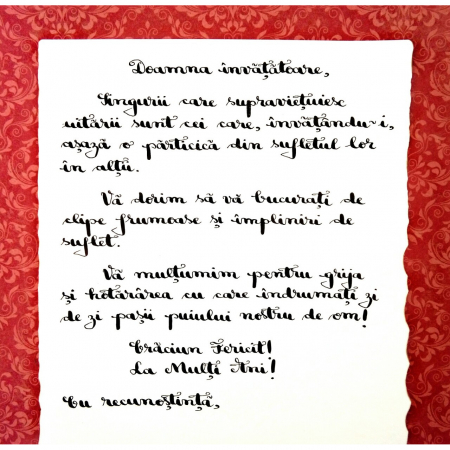 Doamna învățătoare,
Singurii care supraviețuiesc
uitării sunt cei care, învățându-i,
așază o părticică din sufletul lor
în alții.
Vă dorim să vă bucurați de
clipe frumoase și împliniri de
suflet.
Vă mulțumim pentru grija
și hotărârea cu care îndrumați zi
de zi pașii puiului nostru de om!
Crăciun Fericit!
La Mulți Ani!
Cu recunoștință,